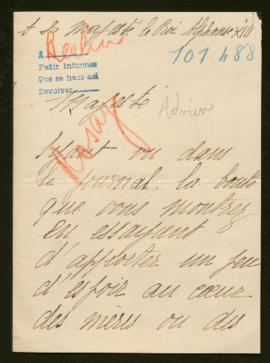 A Sa Majesté le Roi Alphonse XIII
Reclamé
101.488
A
Pedir informes
Que se hace así
Devolver
Majesté
Adrien
Ayant vu dans
le journal la bonté
que vous montrez
en essayant
d'apporter un peu
d'espoir au cœur
des mères ou des